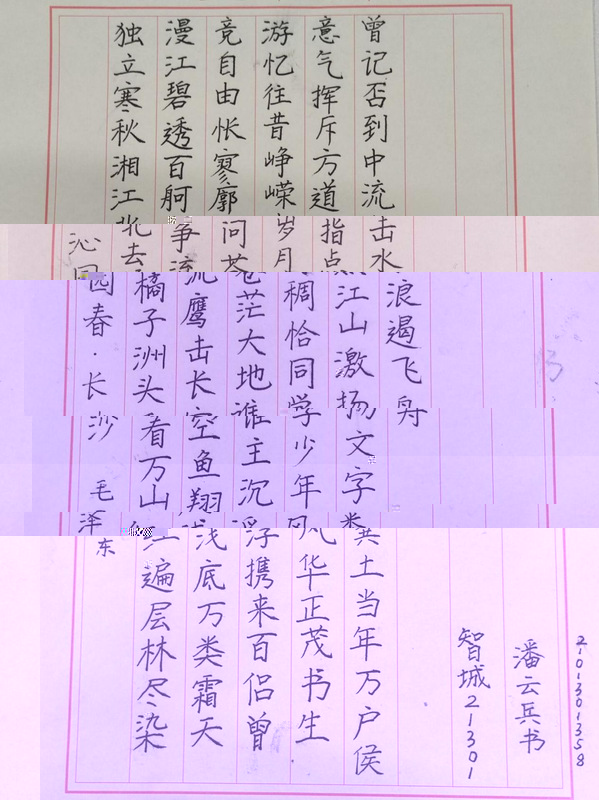 沁园春·长沙
毛泽东
独立寒秋湘江北去橘子洲头看万山红遍层林尽染
漫江碧透百舸争流鹰击长空鱼翔浅底万类霜天
竞自由怅寥廓问苍茫大地谁主沉浮携来百侣曾
游忆往昔峥嵘岁月稠恰同学少年风华正茂书生
意气挥斥方道指点江山激扬文字粪土当年万户侯
曾记否到中流击水浪遏飞舟
智城21301
潘云兵书
2101301358